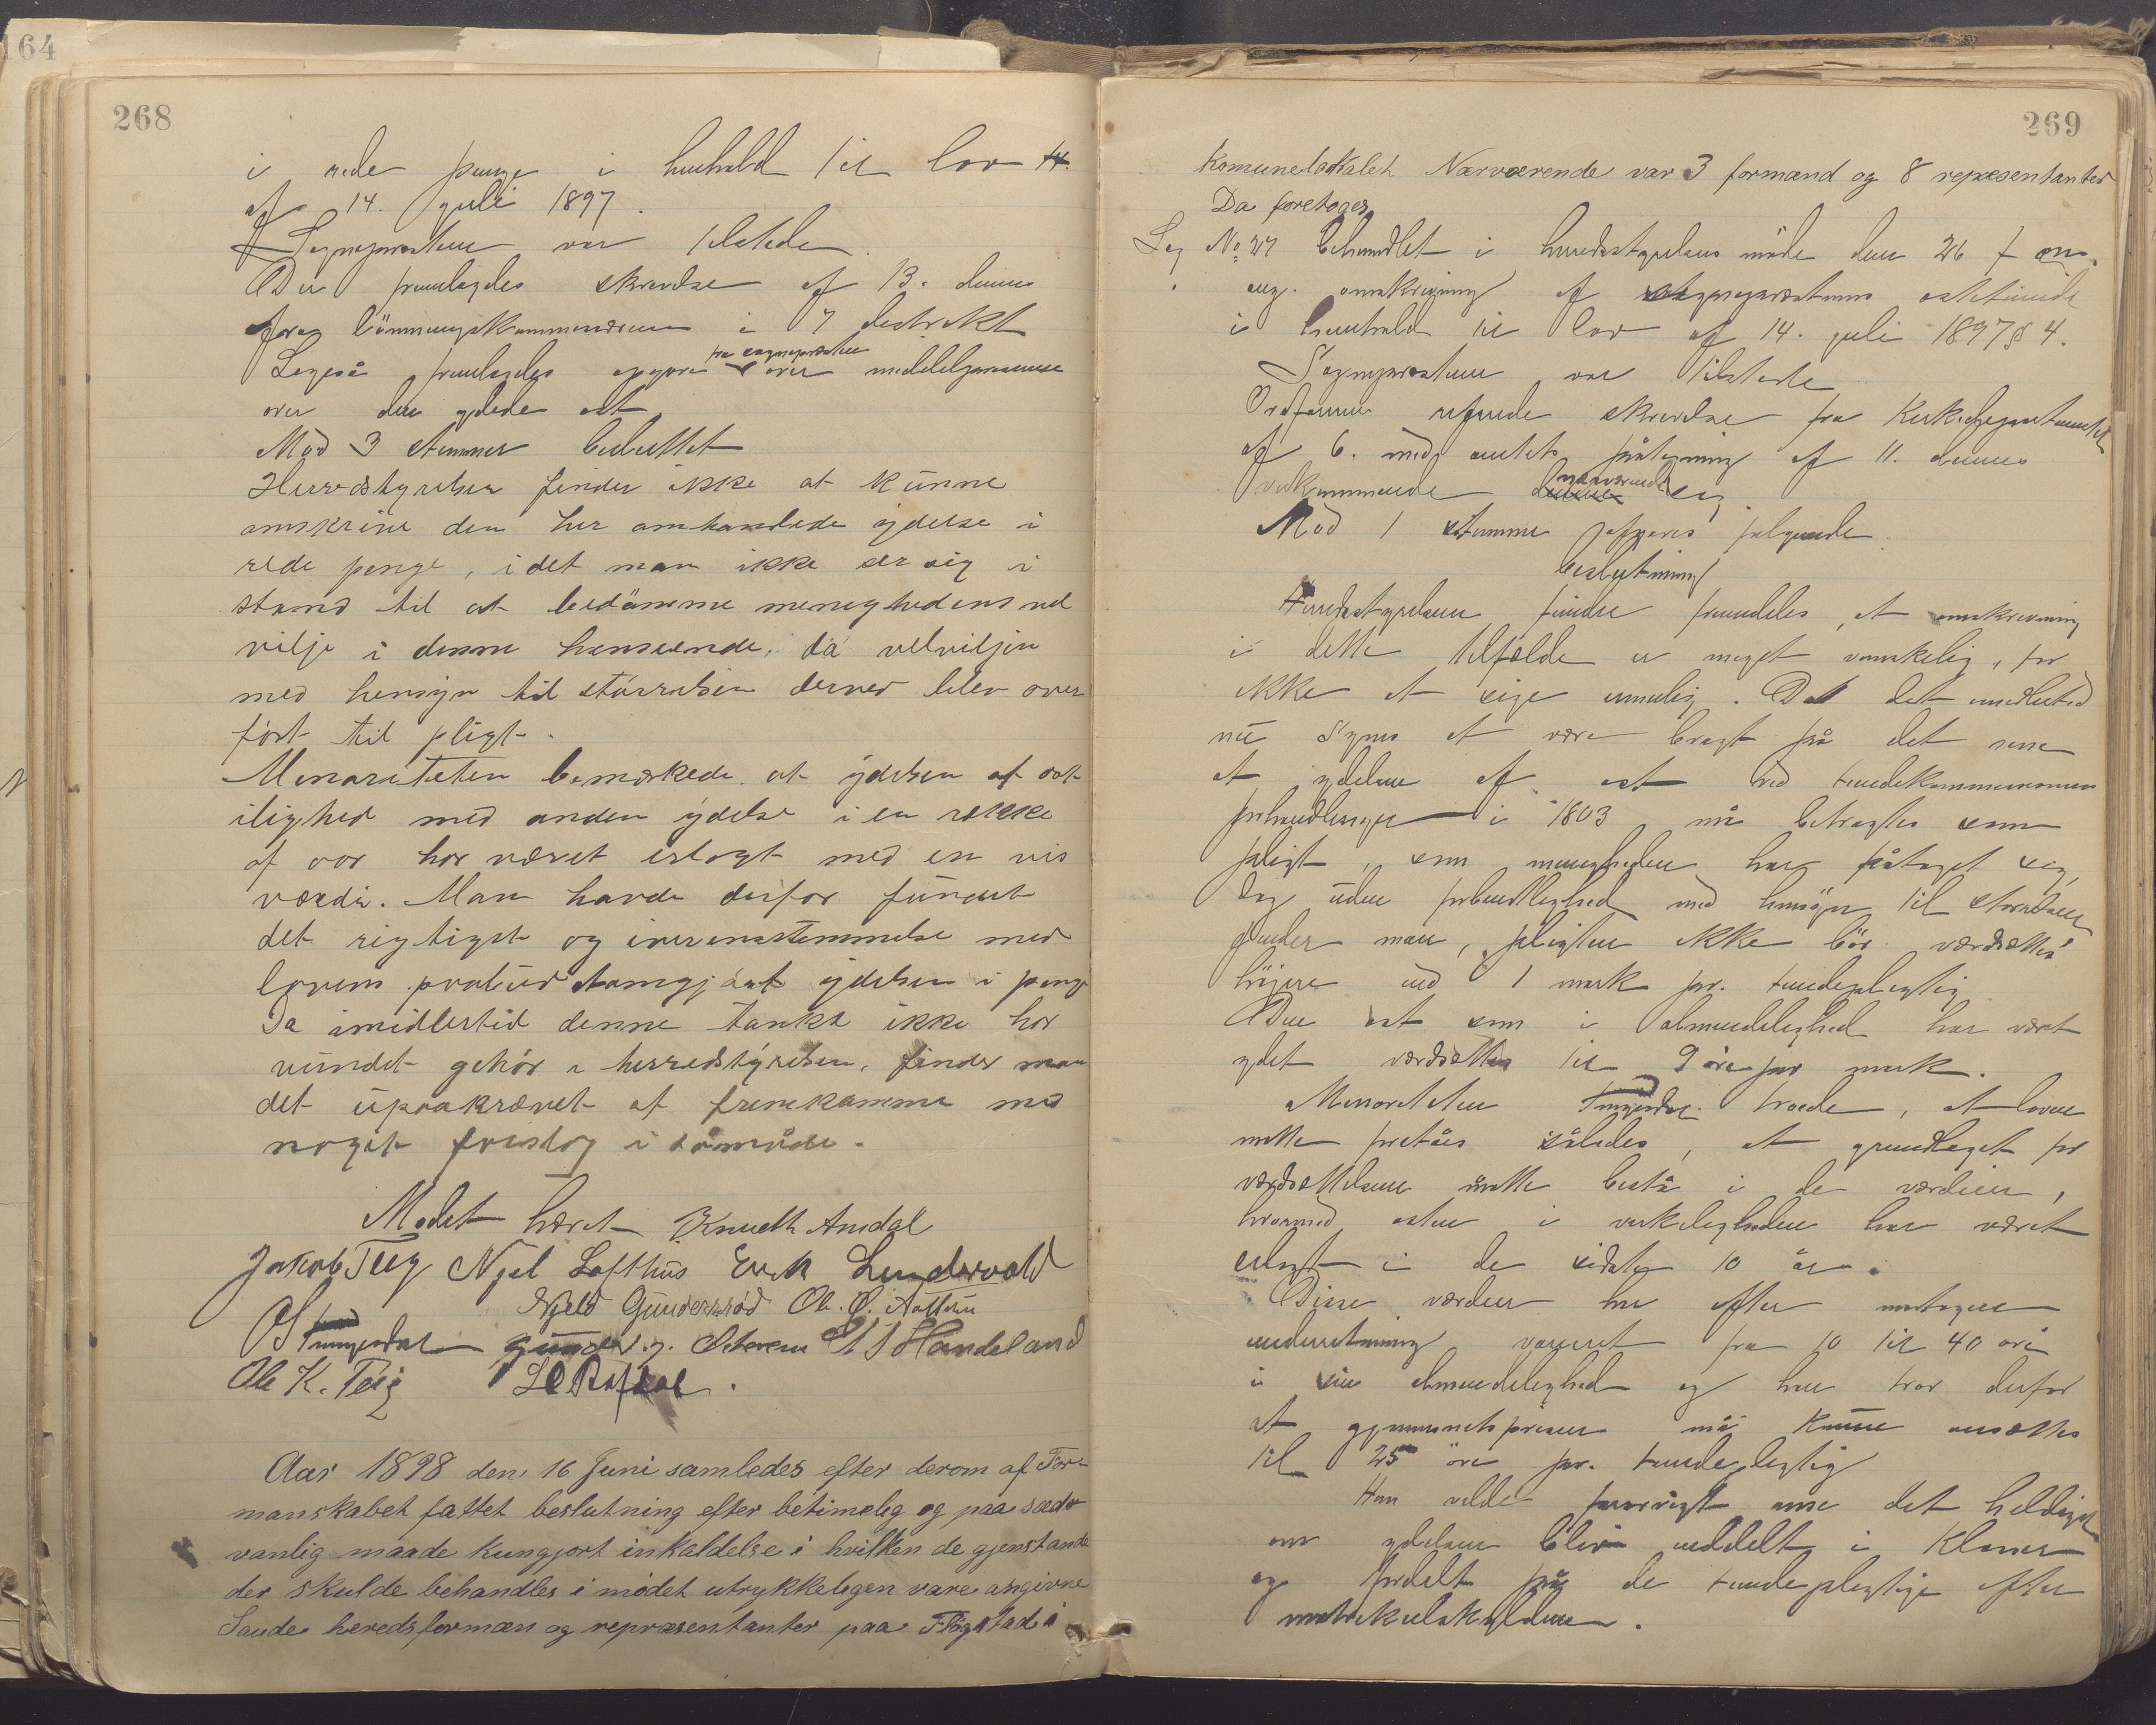 164
268
i rede penge i henhold til lov
af 14. juli 1897.
Sognepræsten var tilstede.
Der fremlagdes skrivelse af 13. dennes
fra lönningskommissæren i 7 destrikt
Ligeså fremlagdes opgave fra sognepræsten over middelpriserne
over den ydede ost
Mod 3 stemmer besluttet
Herredstyrelsen finder ikke at kunne
omskrive den her omhandlede ydelse i
rede penge, idet man ikke ser sig i
stand til at bedömme menighedens vel
vilje i denne henseende, da velviljen
med hensyn til störrelsen derved blev over
fört til pligt.
Menoriteten bemærkede at ydelsen af ost
ilighed med anden ydelse i en rekke
af aar har været erlagt med en vis
værdi. Man havde derfor fundet
det rigtigst og i overensstemmelse med
lovens omgjöre ydelsen i penge
Da imidlertid denne tanke ikke har
vundet gehör i herredstyrelsen, finder man
det upaakrævet at fremkomme med
noget forslag i såmåde.
Mødet hævet Knudth Amdal
Jakob Teig Njel Lofthus Erik Lundervold
Njeld Gunderssöd Ole. Ø.
Ole K. Teig
Aar 1898 den 16 Juni samledes efter derom af For-
manskabet fattet beslutning efter betimelig og paa sædv
vanlig maade kungjort inkaldelse i hvilken de gjenstande
der skulde behandles i mödet utrykkelegen vare angivne
Saude heredsformæn og repræsentanter paa Fløgstad i
269
Komunelokalet Nærværende var 3 formænd og 8 repræsentanter
Da foretoges
Sag No 27 behandlet i herredsstyrelsens möde den 26 f m.
ang. omskrivning af sognepræstens ostetiende
i henhold til lov af 14. juli 1897 § 4.
Sognepræsten var tilstede
Ordföreren refererede skrivelse fra Kirkedepartementet
af 6. med amtets påtegning af 11. dennes
vedkommende nærværende sag
Mod 1 stemme fattedes følgende
beslutning
Herredsstyrelsen finder fremdeles, at omskrivning
i dette tilfælde er meget vanskelig, for
ikke at sige umulig. Da det imidlertid
nu synes at være bragt på det rene
at ydelsen af ost ved tiendekommissionens
forhandlinger i 1803 må betragtes som
pligt, som menigheden har påtaget sig,
dog uden forbindtlighed med hensyn til størrelsen
finder man, pligten ikke bör værdsættes
höjere end 1 mark pr. tiendepligtig
Den ost som i almindelighed har vært
ydet værdsættes til 9 öre per mark.
Menoriteten troede, at loven
måtte forståes således, at grundlaget for
værdsættelsen måtte bestå i de værdier,
hvormed osten i verkeligheden har været
erlagt i de sidste 10 år.
Disse værdier har efter modtagen
underretning varieret fra 10 til 40 öre
i sin almindelighed og han tror derfor
at gjennemsnitsprisen må kunne ansættes
til 25 öre pr. tiendepligtig
Han vilde forövrigt anse det heldigst
om ydelsen blev inddelt i klasser
og fordelt på de tiendepligtige efter
matrikulskylden.